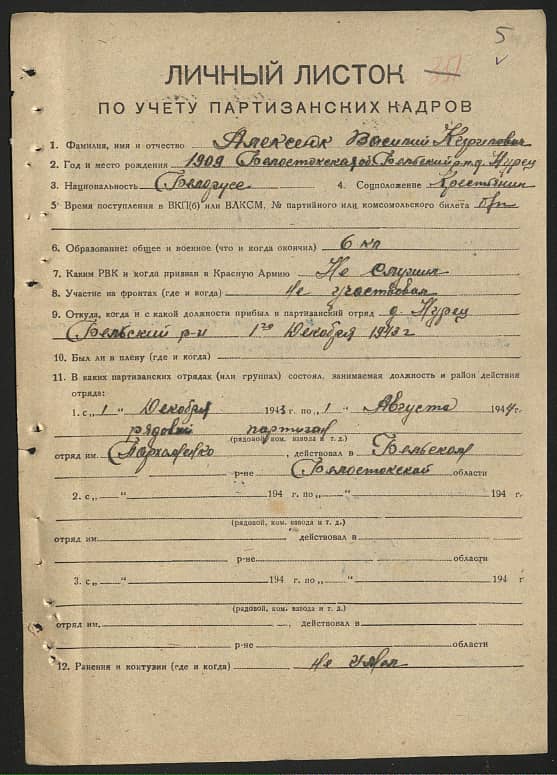 5
351
ЛИЧНЫЙ ЛИСТОК
ПО УЧЕТУ ПАРТИЗАНСКИХ КАДРОВ
1. Фамилия, имя и отчество Алексеюк Василий Кирилович
2. Год и место рождения 1909 Белостокская об Бельский р-н д. Нурец
3. Национальность Белорусс 4. Соцположение Крестьянин
5. Время поступления в ВКП(б) или ВЛКСМ, № партийного или комсомольского билета б/п
6. Образование: общее и военное (что и когда окончил) 6 кл
7. Каким РВК и когда призван в Красную Армию Не служил
8. Участие на фронтах (где и когда) Не участвовал
9. Откуда, когда и с какой должности прибыл в партизанский отряд д. Нурец
Бельский р-н 1го Декабря 1943 г
10. Был ли в плену (где и когда)
11. В каких партизанских отрядах (или группах) состоял, занимаемая должность и район действия
отряда:
1. с „1“ Декабря 1943 г. по „1“ Августа 1944 г.
рядовой партизан
(рядовой, ком. взвода и т. д.)
отряд им. Пархоменко, действовал в Бельском
р-не Белостокской области
2. с „ “ 194 г. по „ “ 194 г.
(рядовой, ком. взвода и т. д.)
отряд им. действовал в
р-не области
3. с „ “ 194 г. по „ “ 194 г.
(рядовой, ком. взвода и т. д.)
отряд им. , действовал в
р-не области
12. Ранения и контузии (где и когда) Не имел